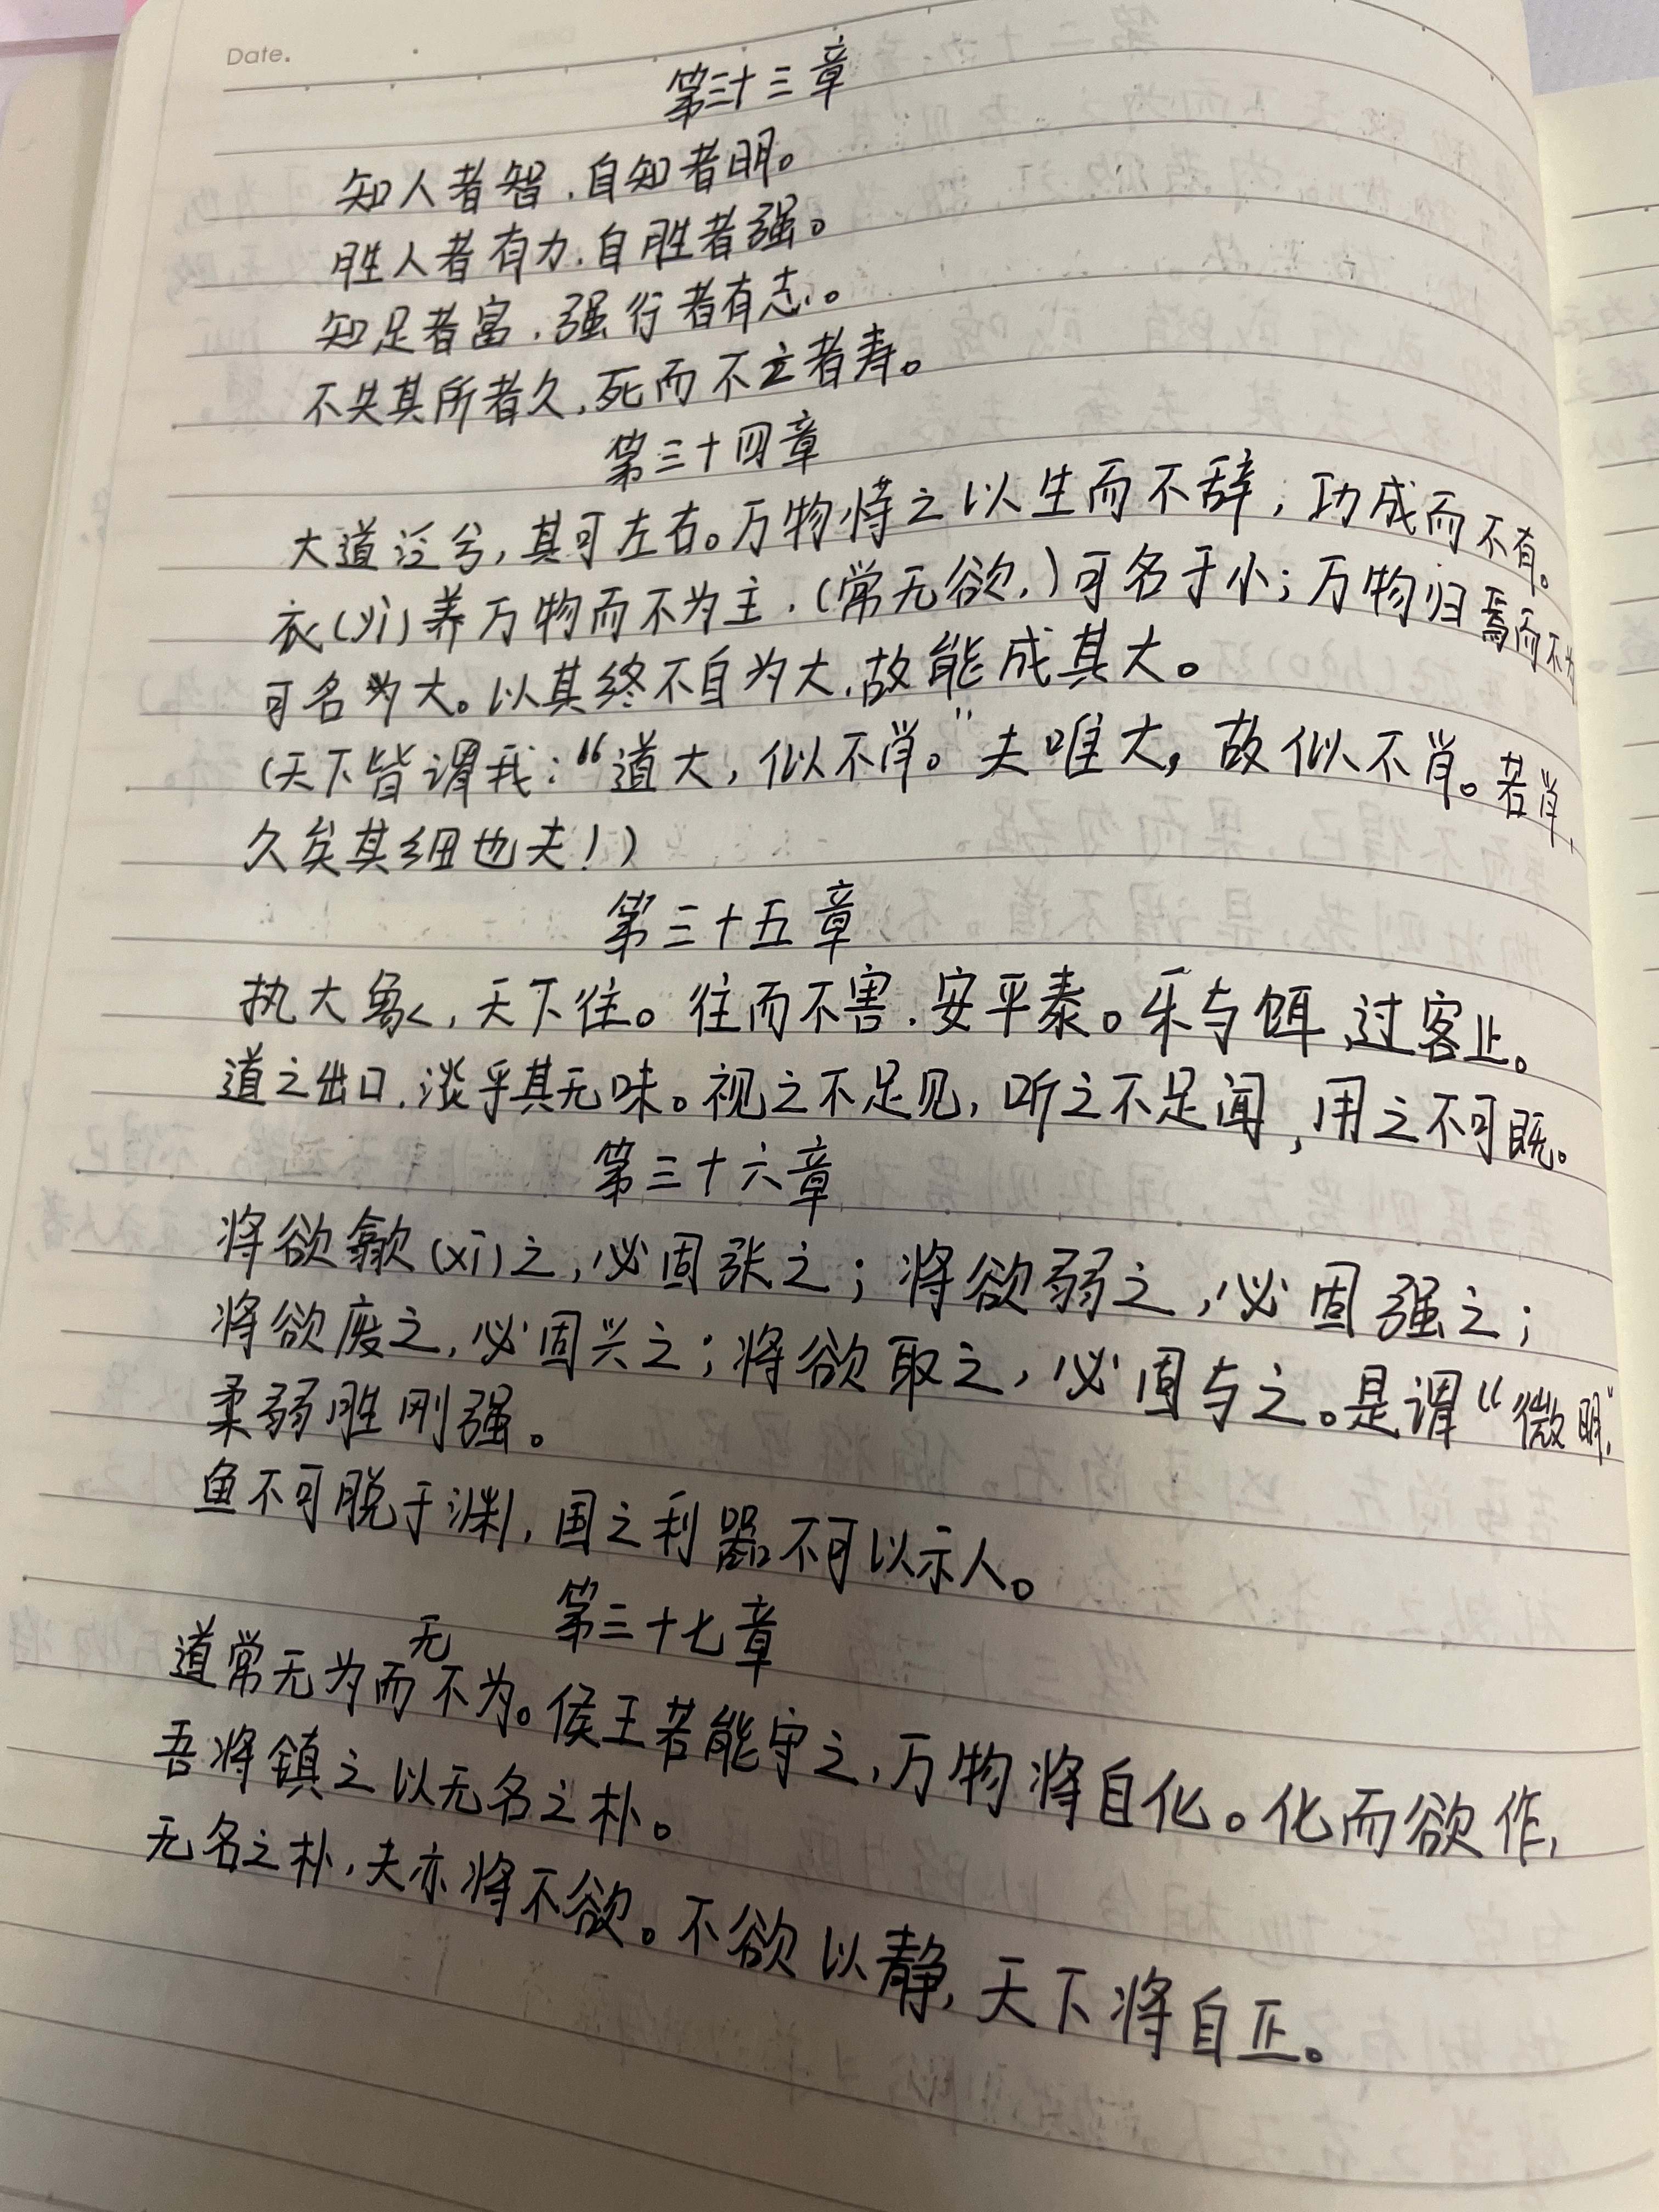 Date.
第三十三章
知人者智，自知者明。
胜人者有力，自胜者强。
知足者富，强行者有志。
不失其所者久，死而不亡者寿。
第三十四章
大道泛兮，其可左右。万物恃之以生而不辞，功成而不有。
衣(yì)养万物而不为主，(常无欲，)可名于小；万物归焉而不为
可名为大。以其终不自为大，故能成其大。
(天下皆谓我：“道大，似不肖。”夫唯大，故似不肖。若肖，
久矣其细也夫！)
第三十五章
执大象，天下往。往而不害，安平泰。乐与饵，过客止。
道之出口，淡乎其无味。视之不足见，听之不足闻，用之不可既。
第三十六章
将欲歙(xī)之，必固张之；将欲弱之，必固强之；
将欲废之，必固兴之；将欲取之，必固与之。是谓“微明”，
柔弱胜刚强。
鱼不可脱于渊，国之利器不可以示人。
第三十七章
无
道常无为而不为。侯王若能守之，万物将自化。化而欲作，
吾将镇之以无名之朴。
无名之朴，夫亦将不欲。不欲以静，天下将自正。